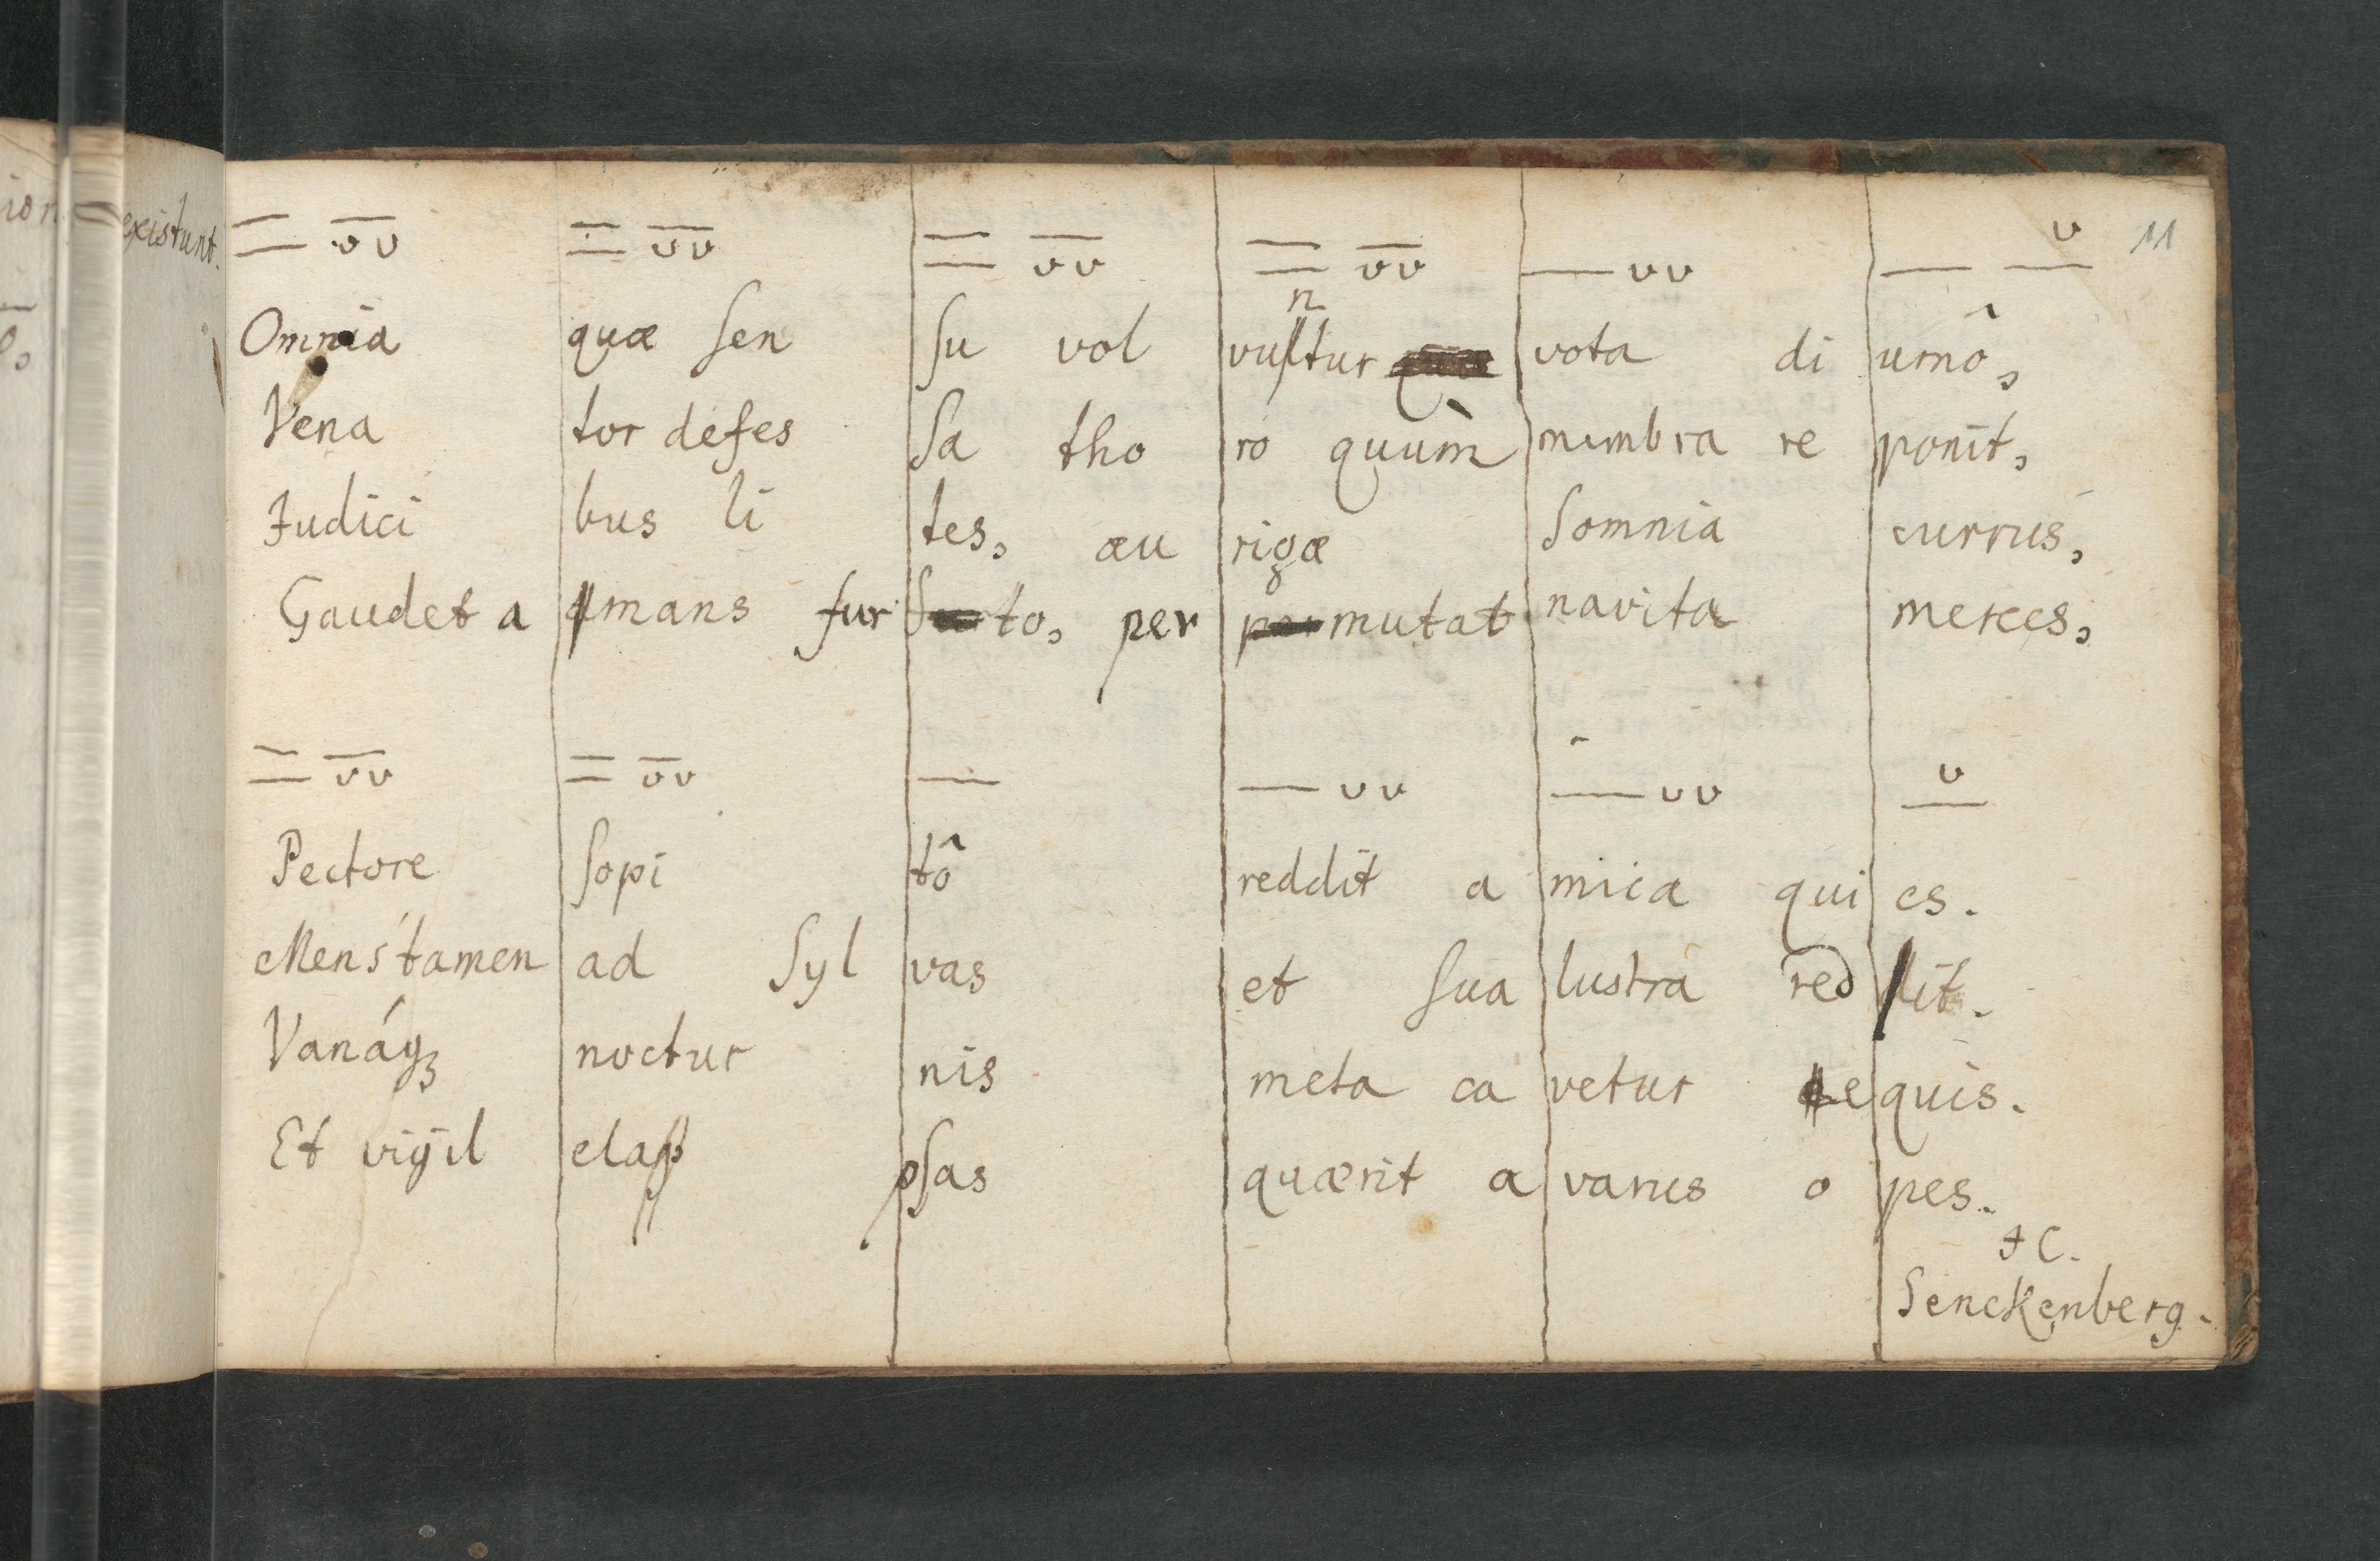 existunt.
11
Omnia quæ sen su vol vuntur vota di urnô,
Vena tor defes sa tho ro quùm mimbra re ponit,
Judici bus li tes, au rigæ somnia currus,
Gaudet a mans fur to, per mutat navita merces,
Pectore sopi tô reddit a mica qui es.
Mens tamen ad syl vas et sua lustra red it.
Vanáq₃ noctur nis meta ca vetur e quis.
Et vigil ela psas quærit a varus o pes.
J C.
Senckenberg.